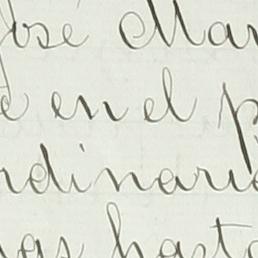 José Mar
e en el p
rdinario
as hasta